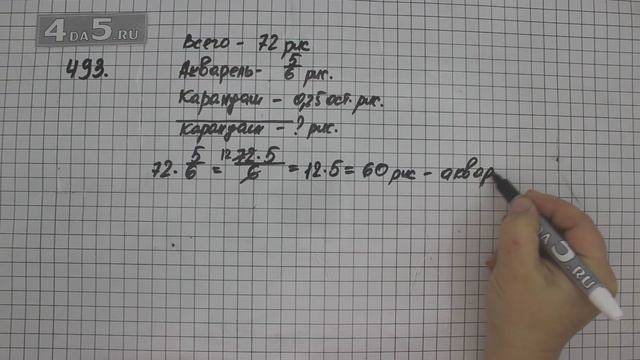 4DA5.RU
Всего - 72 рис
493.
Акварель - 5/6 рис.
Карандаш - 0,25 ост. рис.
Карандаш - ? рис.
72 · 5/6 = 12 72 · 5/6 = 12 · 5 = 60 рис - аквар
4DA5.RU